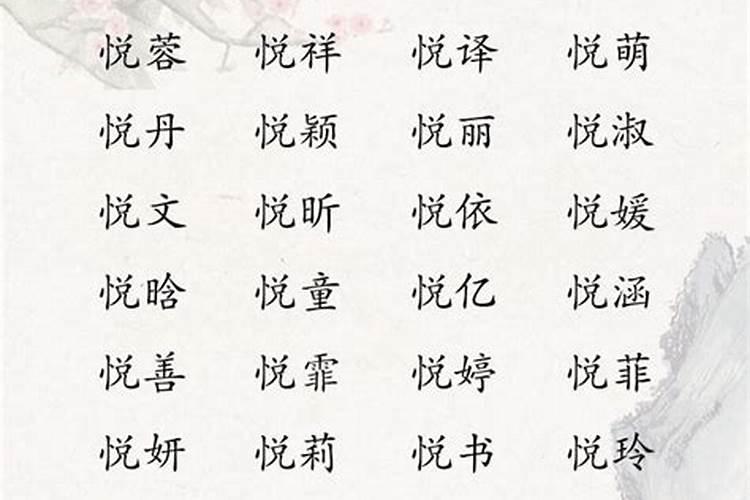 悦蓉 悦祥 悦译 悦萌
悦丹 悦颖 悦丽 悦淑
悦文 悦昕 悦依 悦媛
悦晗 悦童 悦亿 悦涵
悦善 悦霏 悦婷 悦菲
悦妍 悦莉 悦书 悦玲